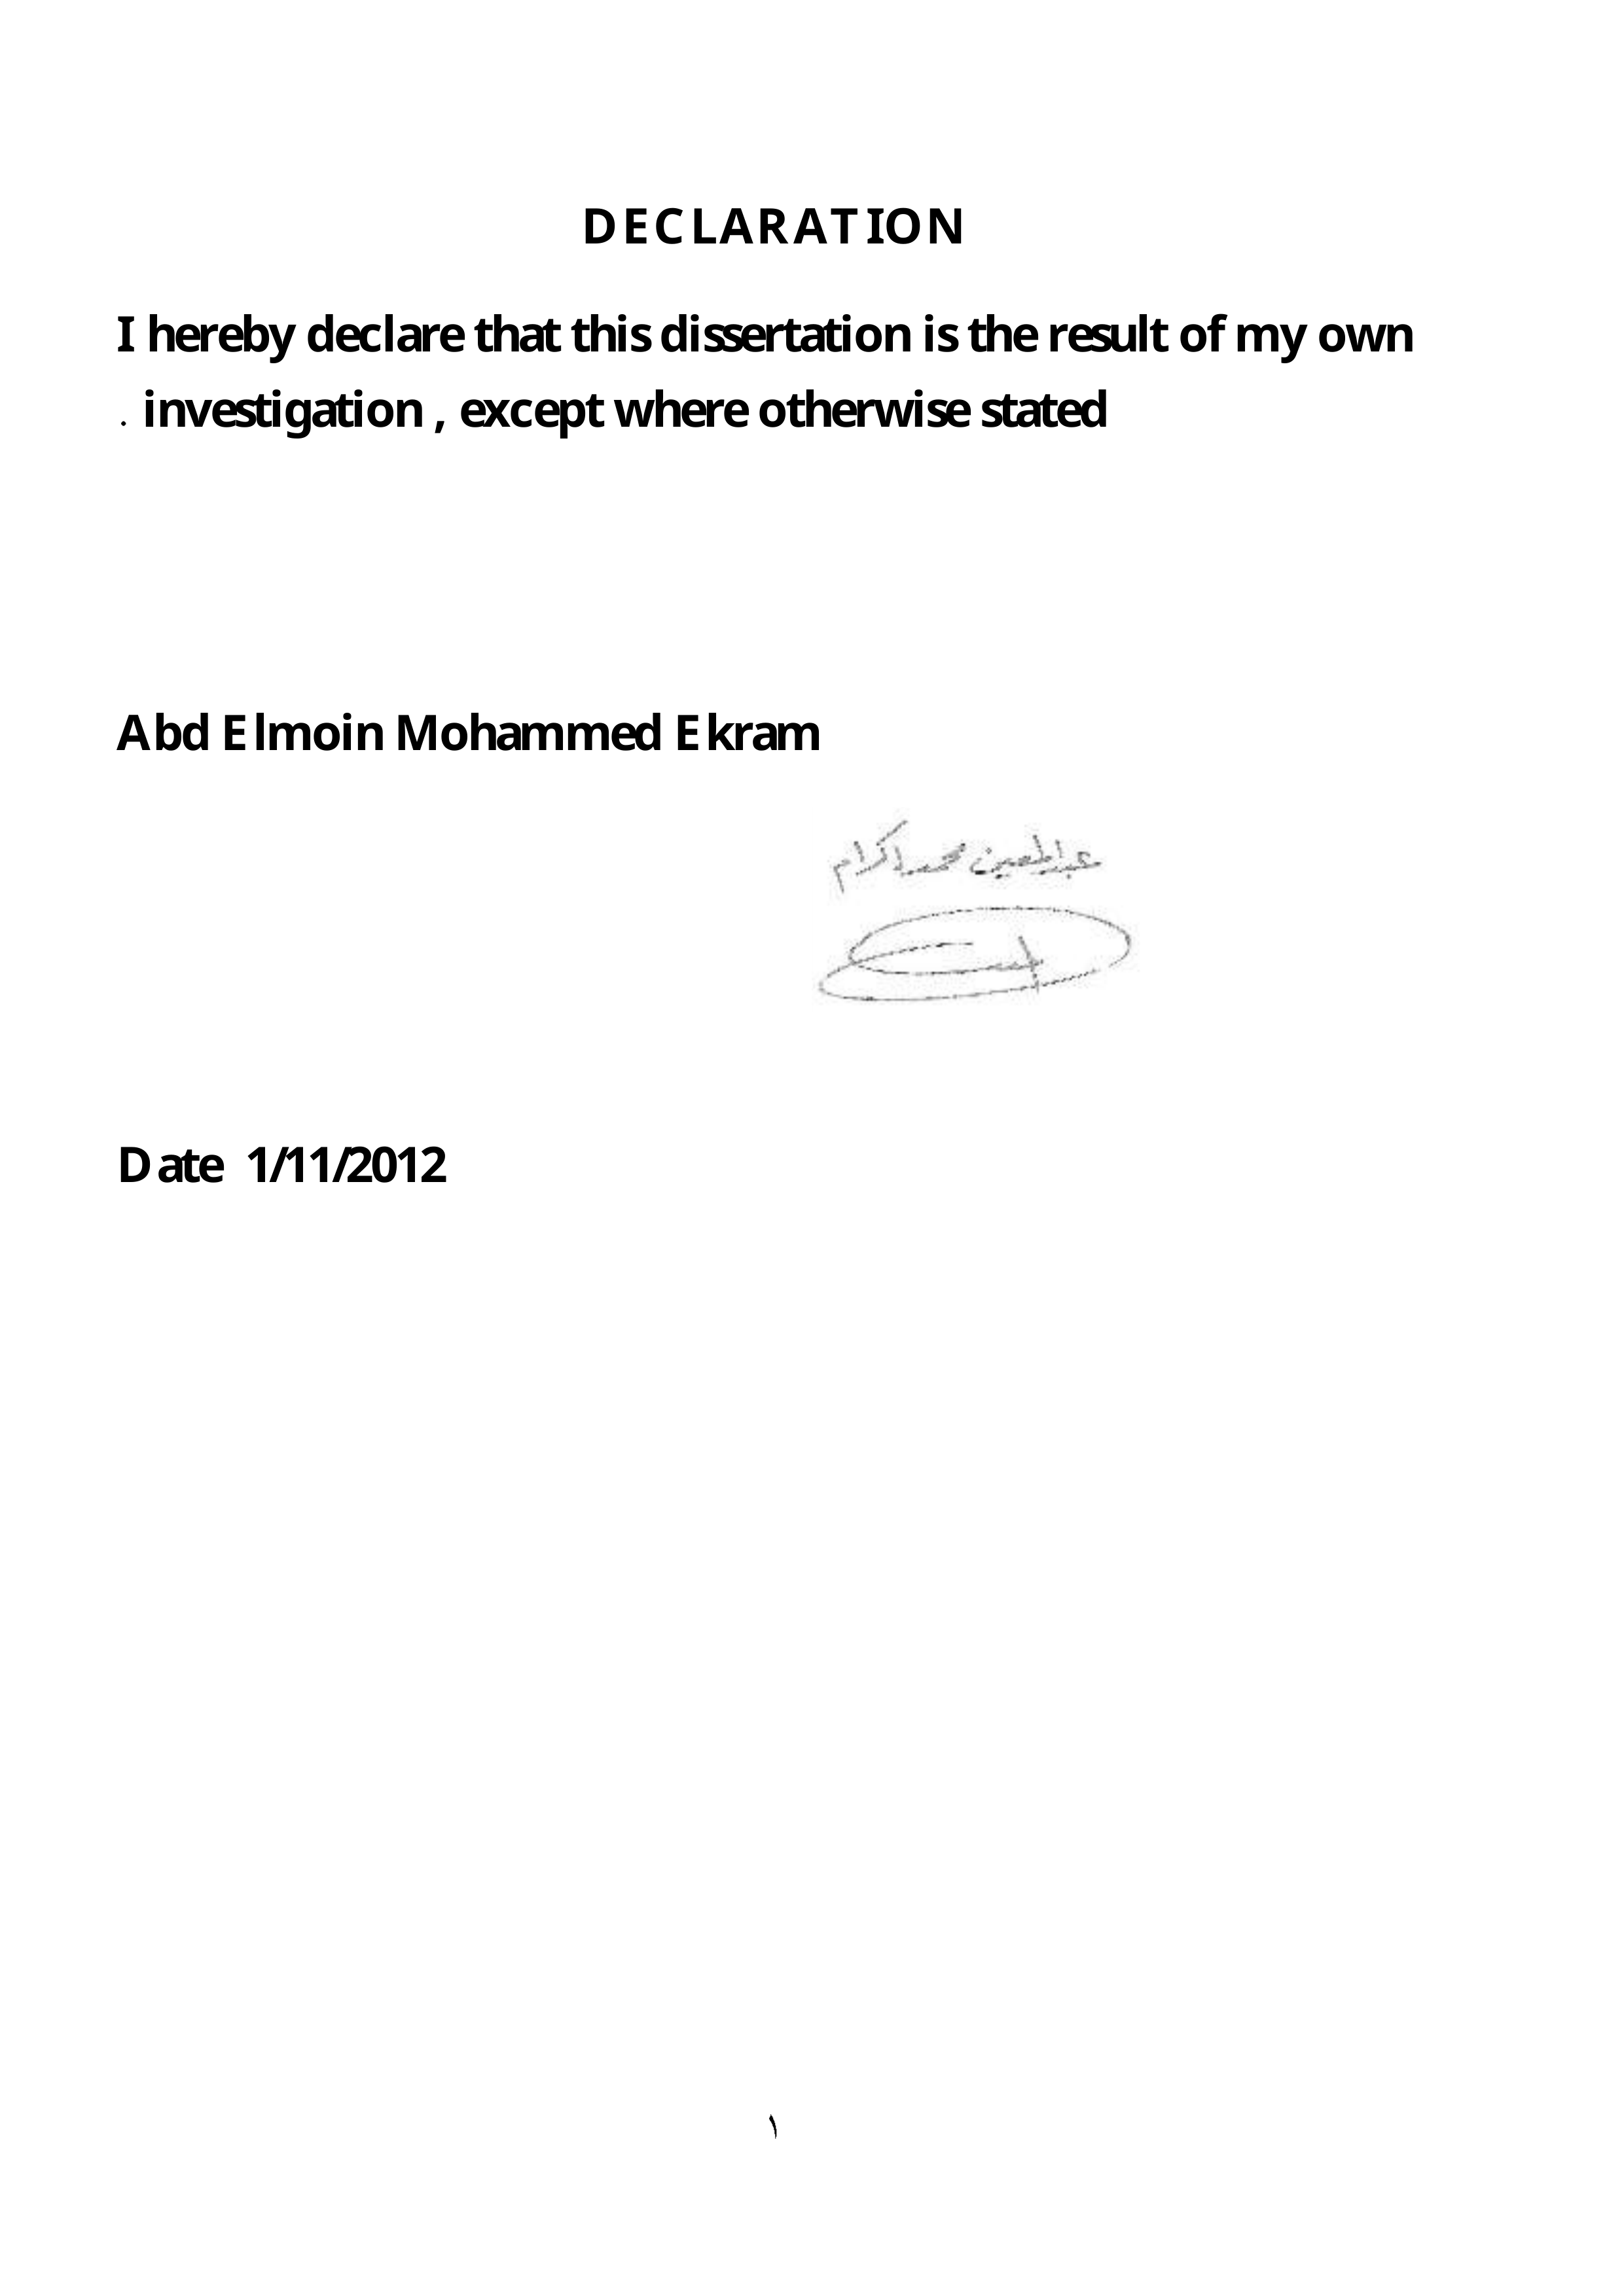 DECLARATION
I hereby declare that this dissertation is the result of my own
. investigation , except where otherwise stated
Abd Elmoin Mohammed Ekram
عبد المعين محمد اكرام
Date 1/11/2012
١